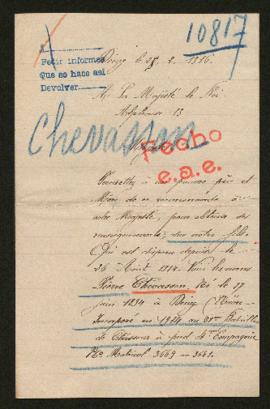 10817
Pedir informes
Que se hace así
Devolver
le 28. 2. 1916.
A Sa Majesté le Roi
Alphonse 13
Chevassu
Fecho
e.a.e.
à
Mère de se recommander à
votre Majesté, pour obtenir des
renseignements, sur notre fils.
Qui est disparu depuis le
26 Août 1914. Nous
Pierre Chevassu Né le 27
Juin 1894 à
Incorporé en 1914 au 31e Bataillon
de Chasseurs à pied 4e Compagnie
Nº Matricul 3669 - 3661.